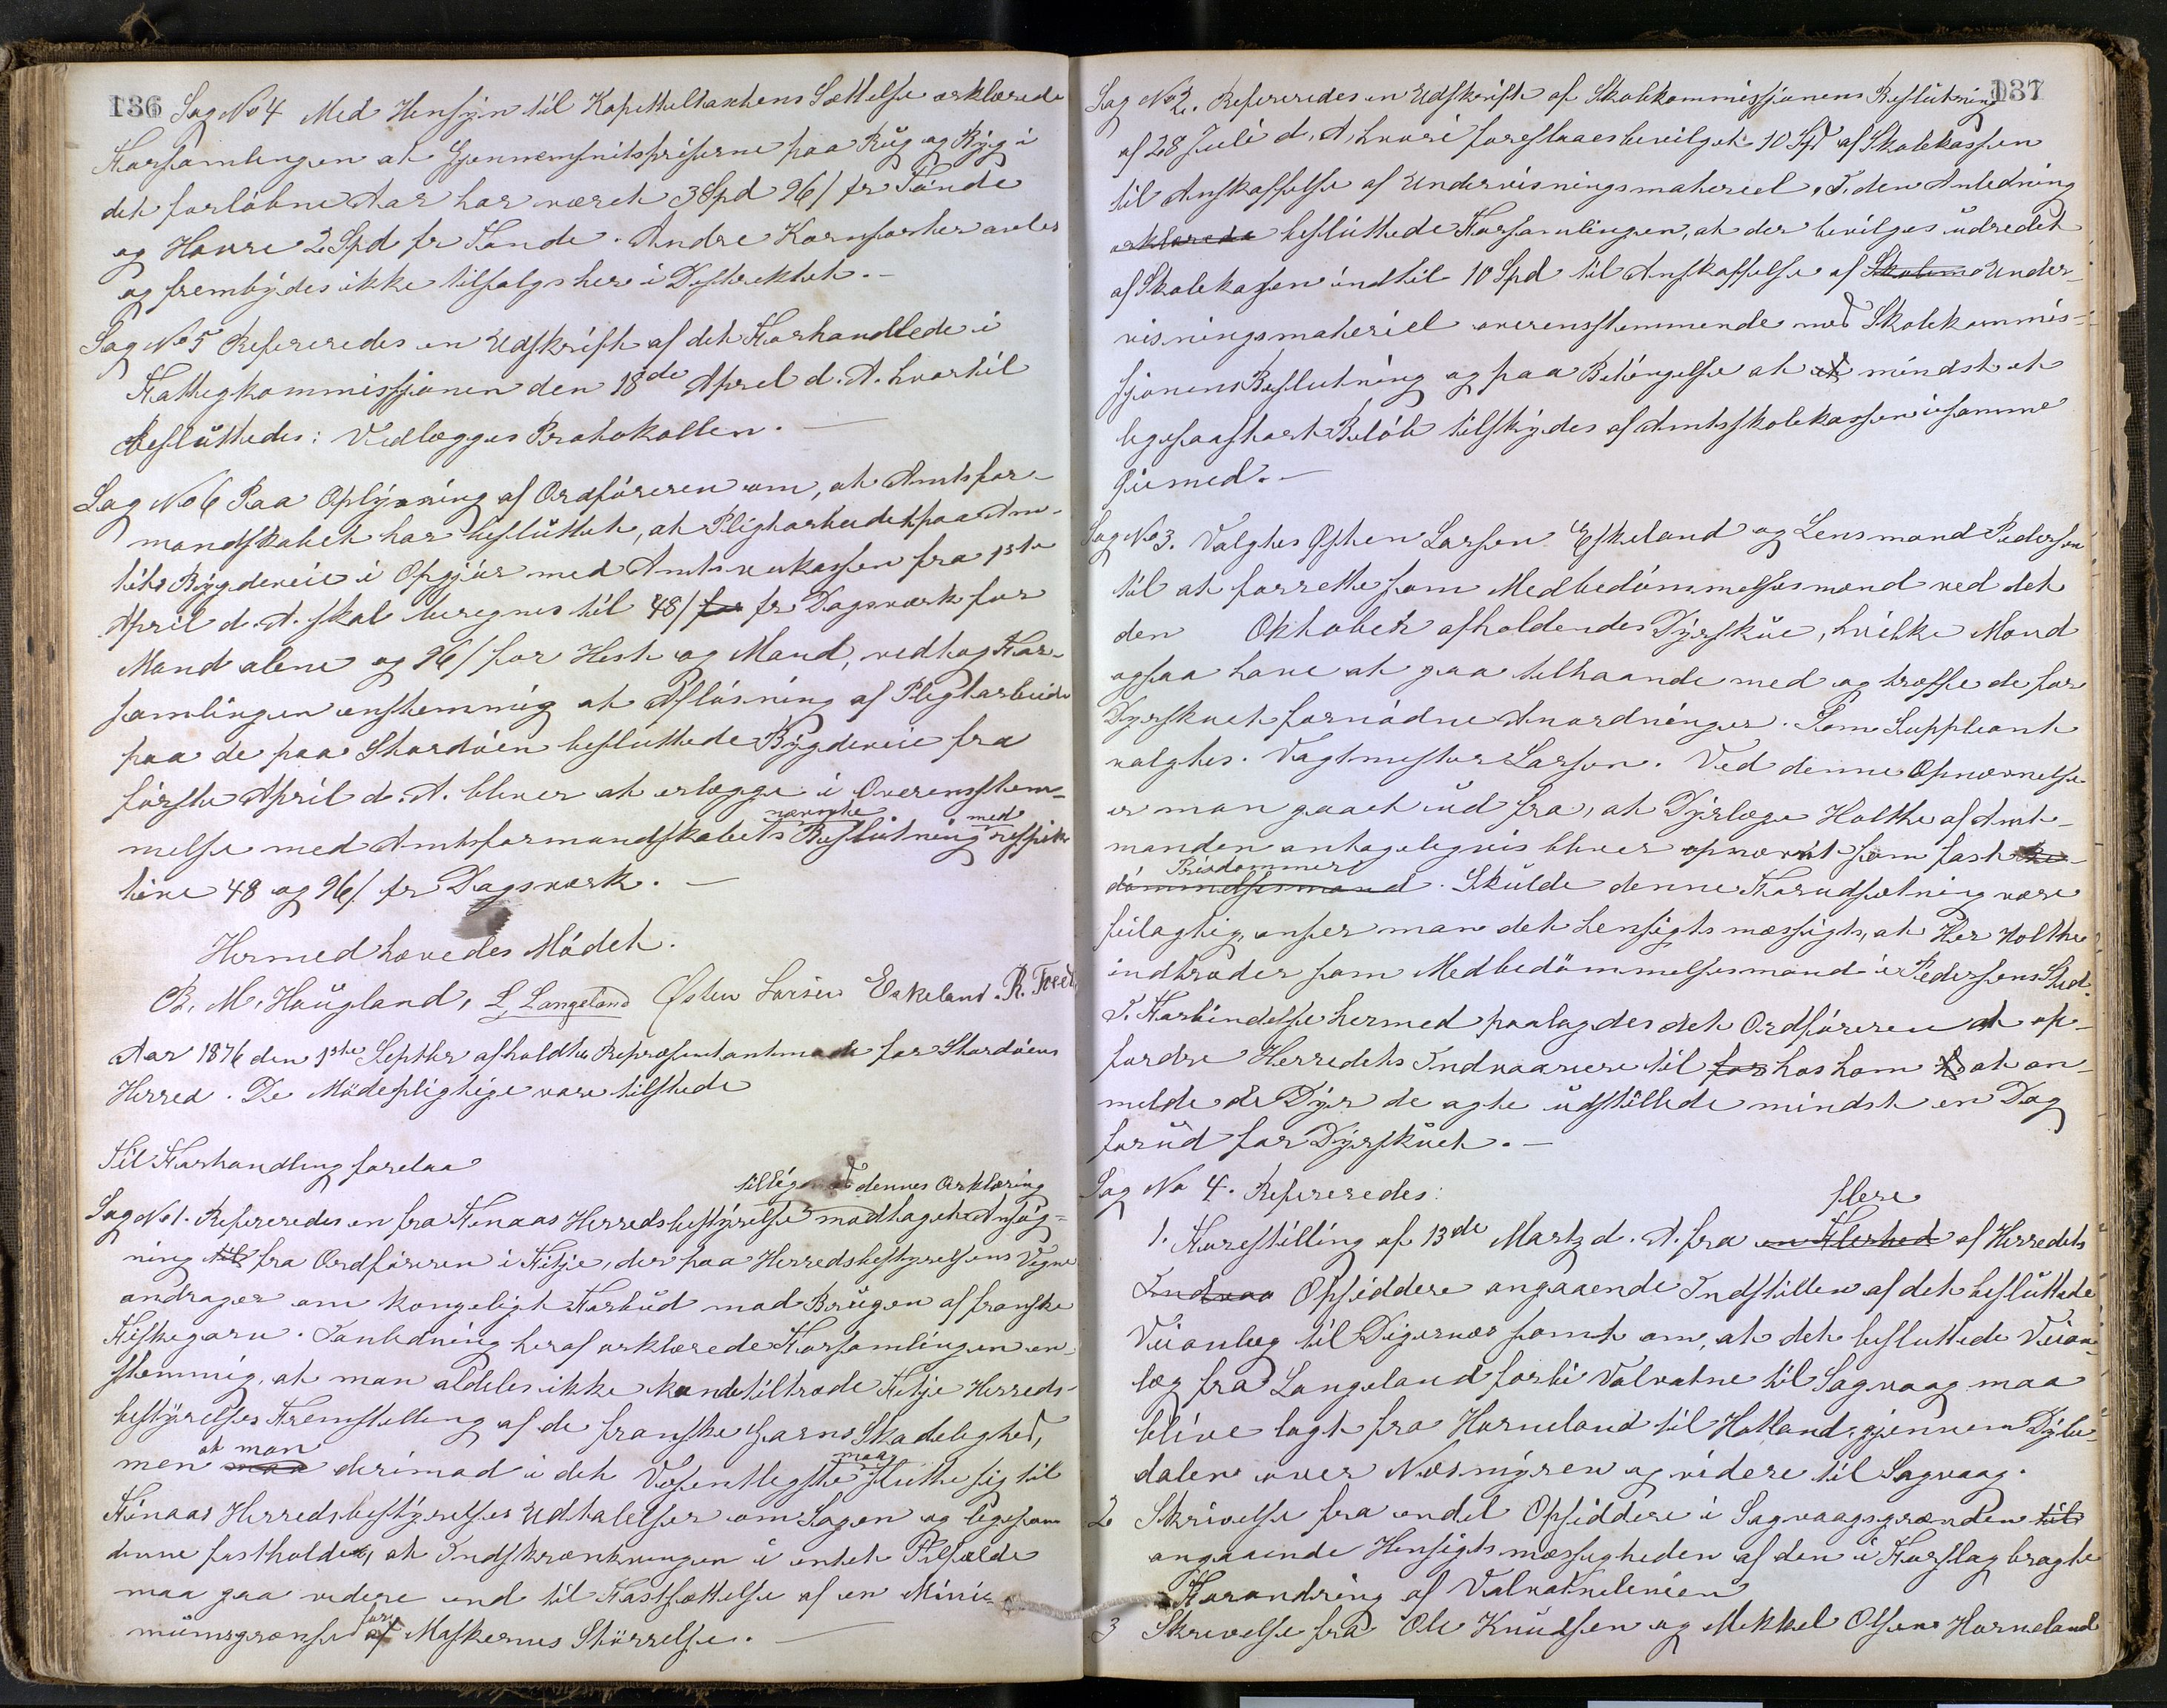 136
Sag No 4 Med Hensyn til Kapitultaxtens Sættelse erklærede
Forsamlingen at Gjennemsnitspriserne paa Rug og Byg i
det forløbne Aar har været 3 Spd 96/ pr Tønde
og Havre 2 Spd pr Tønde. Andre Kornsorter avles
og frembydes ikke tilsalgs her i Distriktet. -
Sag No 5 Refereredes en Udskrift af det Forhandlede i
Fattigkommissjonen den 18de April d. A. hvortil
Besluttedes: Vedlægges Protokollen. -
Sag No 6 Paa Oplysning af Ordføreren om, at Amtsfor-
mandskabet har besluttet, at Pligtarbeidet paa Am-
tets Bygdeveie i Opgjør med Amtsveikassen fra 1ste
April d. A. skal beregnes til 48/ for pr Dagsværk for
Mand alene og 96/ for Hest og Mand, vedtog For-
samlingen enstemmig at Afløsning af Pligtarbeide
paa de paa Stordøen besluttede Bygdeveie fra
første April d. A. bliver at erlægge i Overensstem-
nævnte med
melse med Amtsformandskabets Beslutning respek-
tive 48 og 96/ pr Dagsværk. -
Hermed hævedes Mødet.
B. M. Haugland, L Langeland Østen Larsen Eskeland. R. Tveit
Aar 1876 den 1ste Septbr afholdtes Repræsentantmøde for Stordøens
Herred. De Mødepligtige vare tilstede
Til Forhandling forelaa
tilligemed dennes Erklæring
Sag No 1. Refereredes en fra Finaas Herredsbestyrelse modtaget Ansøg-
ning til fra Ordføreren i Fitje, der paa Herredsbestyrelsens Vegne
andrager om kongeligt Forbud mod Brugen af franske
Fiskegarn. I anledning heraf erklærede Forsamlingen en-
stemmig, at man aldeles ikke kunde tiltræde Fitje Herreds-
bestyrelses Fremstilling af de franske Garns Skadelighed,
at man maa
men maa derimod i det Væsentligste slutte sig til
Finaas Herredsbestyrelses Udtalelser om Sagen og ligesom
denne fastholder, at Indskrænkningen i intet Tilfælde
maa gaa videre end til Fastsættelse af en Mini-
for
mumsgrænse af Maskernes Størrelse. -
137
Sag No 2. Refereredes en Udskrift af Skolekommissjonens Beslutning
af 28 Juli d. A, hvori foreslaaes bevilget 10 Spd af Skolekassen
til Anskaffelse af Undervisningsmateriel. I den Anledning
erklærede besluttede Forsamlingen, at der bevilges udredet
af Skolekassen indtil 10 Spd til Anskaffelse af Skolem Under-
visningsmateriel overensstemmende med Skolekommis-
sjonens Beslutning og paa Betingelse at et mindst et
ligesaastort Beløb tilskydes af Amtsskolekassen i samme
Øiemed. -
Sag No 3. Valgtes Østen Larsen Eskeland og Lensmand Pedersen
til at forrette som Medbedømmelsesmænd ved det
den Oktober afholdendes Dyrskue, hvilke Mænd
ogsaa have at gaa tilhaande med og træffe de for
Dyrskuet fornødne Anordninger. Som Suppleant
valgtes. Vagtmester Larsen. Ved denne Opnævnelse
er man gaaet ud fra, at Dyrlæge Holthe af Amt-
manden antageligvis bliver opnævnt som fast Be-
Prisdommer
dømmelsesmand. Skulde denne Forudsætning være
feilagtig, anser man det hensigtsmæssigt, at Her Holthe
indtræder som Medbedømmelsesmand i Pedersens Sted.
I Forbindelse hermed paalagdes det Ordføreren at op-
fordre Herredets Indvaanere til for hos ham at an-
melde de Dyr de agte udstillede mindst en Dag
forud for Dyrskuet. -
Sag No 4. Refereredes:
flere
1. Forestilling af 13de Martz d. A. fra en Flerhed af Herredets
Indvaa Opsiddere angaaende Indstillen af det besluttede
Veianlæg til Digernæs samt om, at det besluttede Veian-
læg fra Langeland forbi Valvatne til Sagvaag maa
blive lagt fra Horneland til Hatland, gjennem Dybe-
dalen over Næsmyren og videre til Sagvaag.
2 Skrivelse fra endel Opsiddere i Sagvaagsgrænden til
angaaende Hensigtsmæssigheden af den i Forslag bragte
Forandring af Valvatnelinien
3 Skrivelse fra Ole Knudsen og Mikkel Olsen Horneland